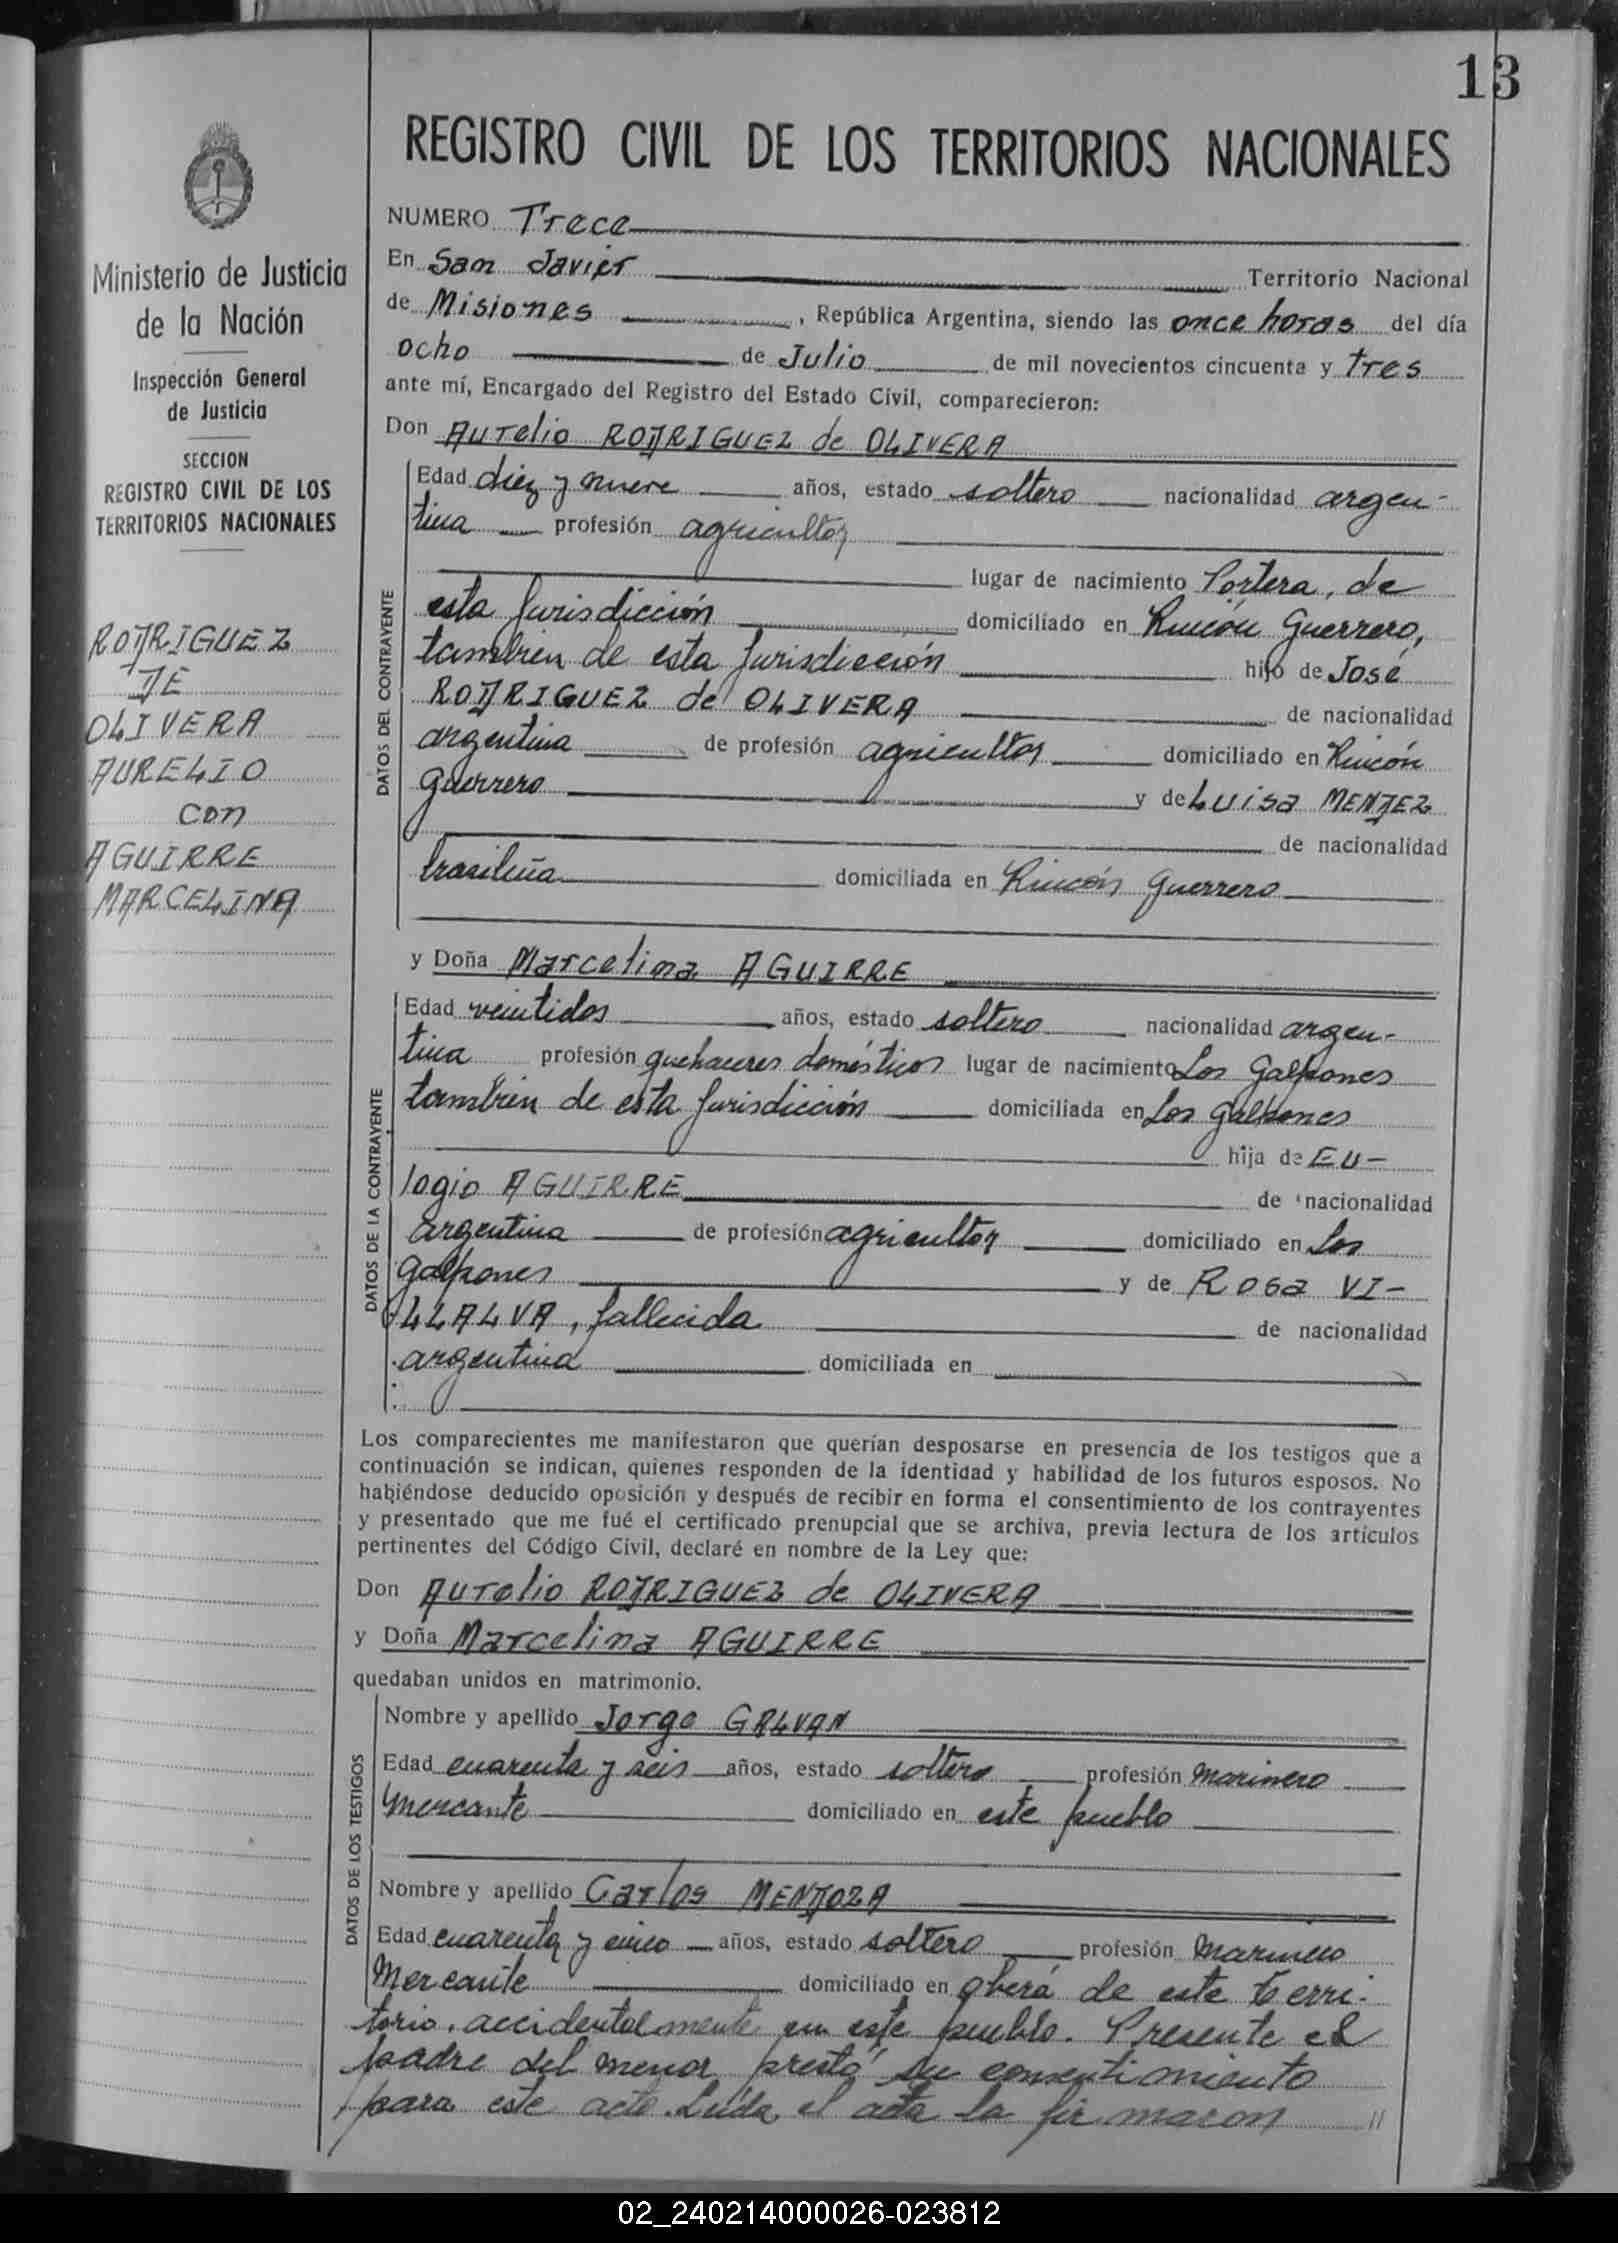 13
REGISTRO CIVIL DE LOS TERRITORIOS NACIONALES
Ministerio de Justicia
de la Nación
Inspección General
de Justicia
SECCION
REGISTRO CIVIL DE LOS
TERRITORIOS NACIONALES
RODRIGUEZ
DE
OLIVERA
AURELIO
con
AGUIRRE
MARCELINA
NUMERO Trece
En San Javier Territorio Nacional
de Misiones, República Argentina, siendo las once horas del día
ocho de Julio de mil novecientos cincuenta y tres
ante mí, Encargado del Registro del Estado Civil, comparecieron:
Don Aurelio RODRIGUEZ de OLIVERA
DATOS DEL CONTRAYENTE
Edad diez y nueve años, estado soltero nacionalidad argen-
tina profesión agricultor
lugar de nacimiento Portera, de
esta Jurisdicción domiciliado en Rincón Guerrero,
también de esta Jurisdicción hijo de José
RODRIGUEZ de OLIVERA de nacionalidad
argentina de profesión agricultor domiciliado en Rincón
Guerrero y de Luisa MENDEZ
de nacionalidad
brasileña domiciliada en Rincón Guerrero
y Doña Marcelina AGUIRRE
DATOS DE LA CONTRAYENTE
Edad veintidos años, estado soltero nacionalidad argen-
tina profesión quehaceres domésticos lugar de nacimiento Los Galpones
también de esta Jurisdicción domiciliada en Los Galpones
hija de EU-
logio AGUIRRE de nacionalidad
argentina de profesión agricultor domiciliado en Los
Galpones y de Rosa VI-
LLALVA, fallecida de nacionalidad
argentina domiciliada en
Los comparecientes me manifestaron que querían desposarse en presencia de los testigos que a
continuación se indican, quienes responden de la identidad y habilidad de los futuros esposos. No
habiéndose deducido oposición y después de recibir en forma el consentimiento de los contrayentes
y presentado que me fué el certificado prenupcial que se archiva, previa lectura de los artículos
pertinentes del Código Civil, declaré en nombre de la Ley que:
Don Aurelio RODRIGUEZ de OLIVERA
y Doña Marcelina AGUIRRE
quedaban unidos en matrimonio.
DATOS DE LOS TESTIGOS
Nombre y apellido Jorge GALVAN
Edad cuarenta y seis años, estado soltero profesión Marinero
Mercante domiciliado en este pueblo
Nombre y apellido Carlos MENDOZA
Edad cuarenta y cinco años, estado soltero profesión Marinero
Mercante domiciliado en Oberá de este terri-
torio, accidentalmente en este pueblo. Presente el
padre del menor prestó su consentimiento
para este acto. Leída el acta la firmaron //
02_240214000026-023812